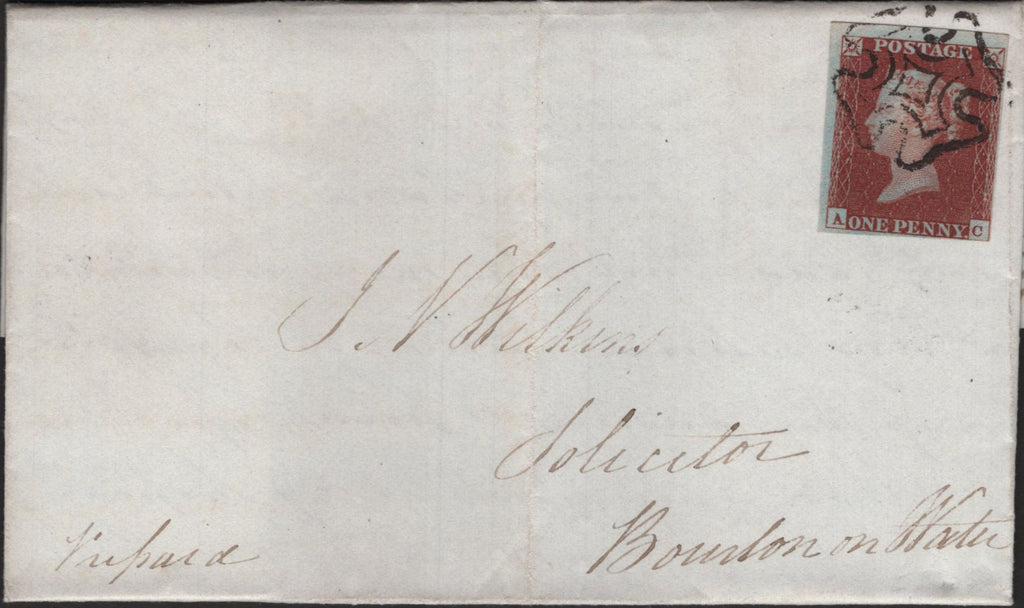 POSTAGE
A ONE PENNY C
J N Wilkins
Solicitor
Bourton on Water
Prepaid